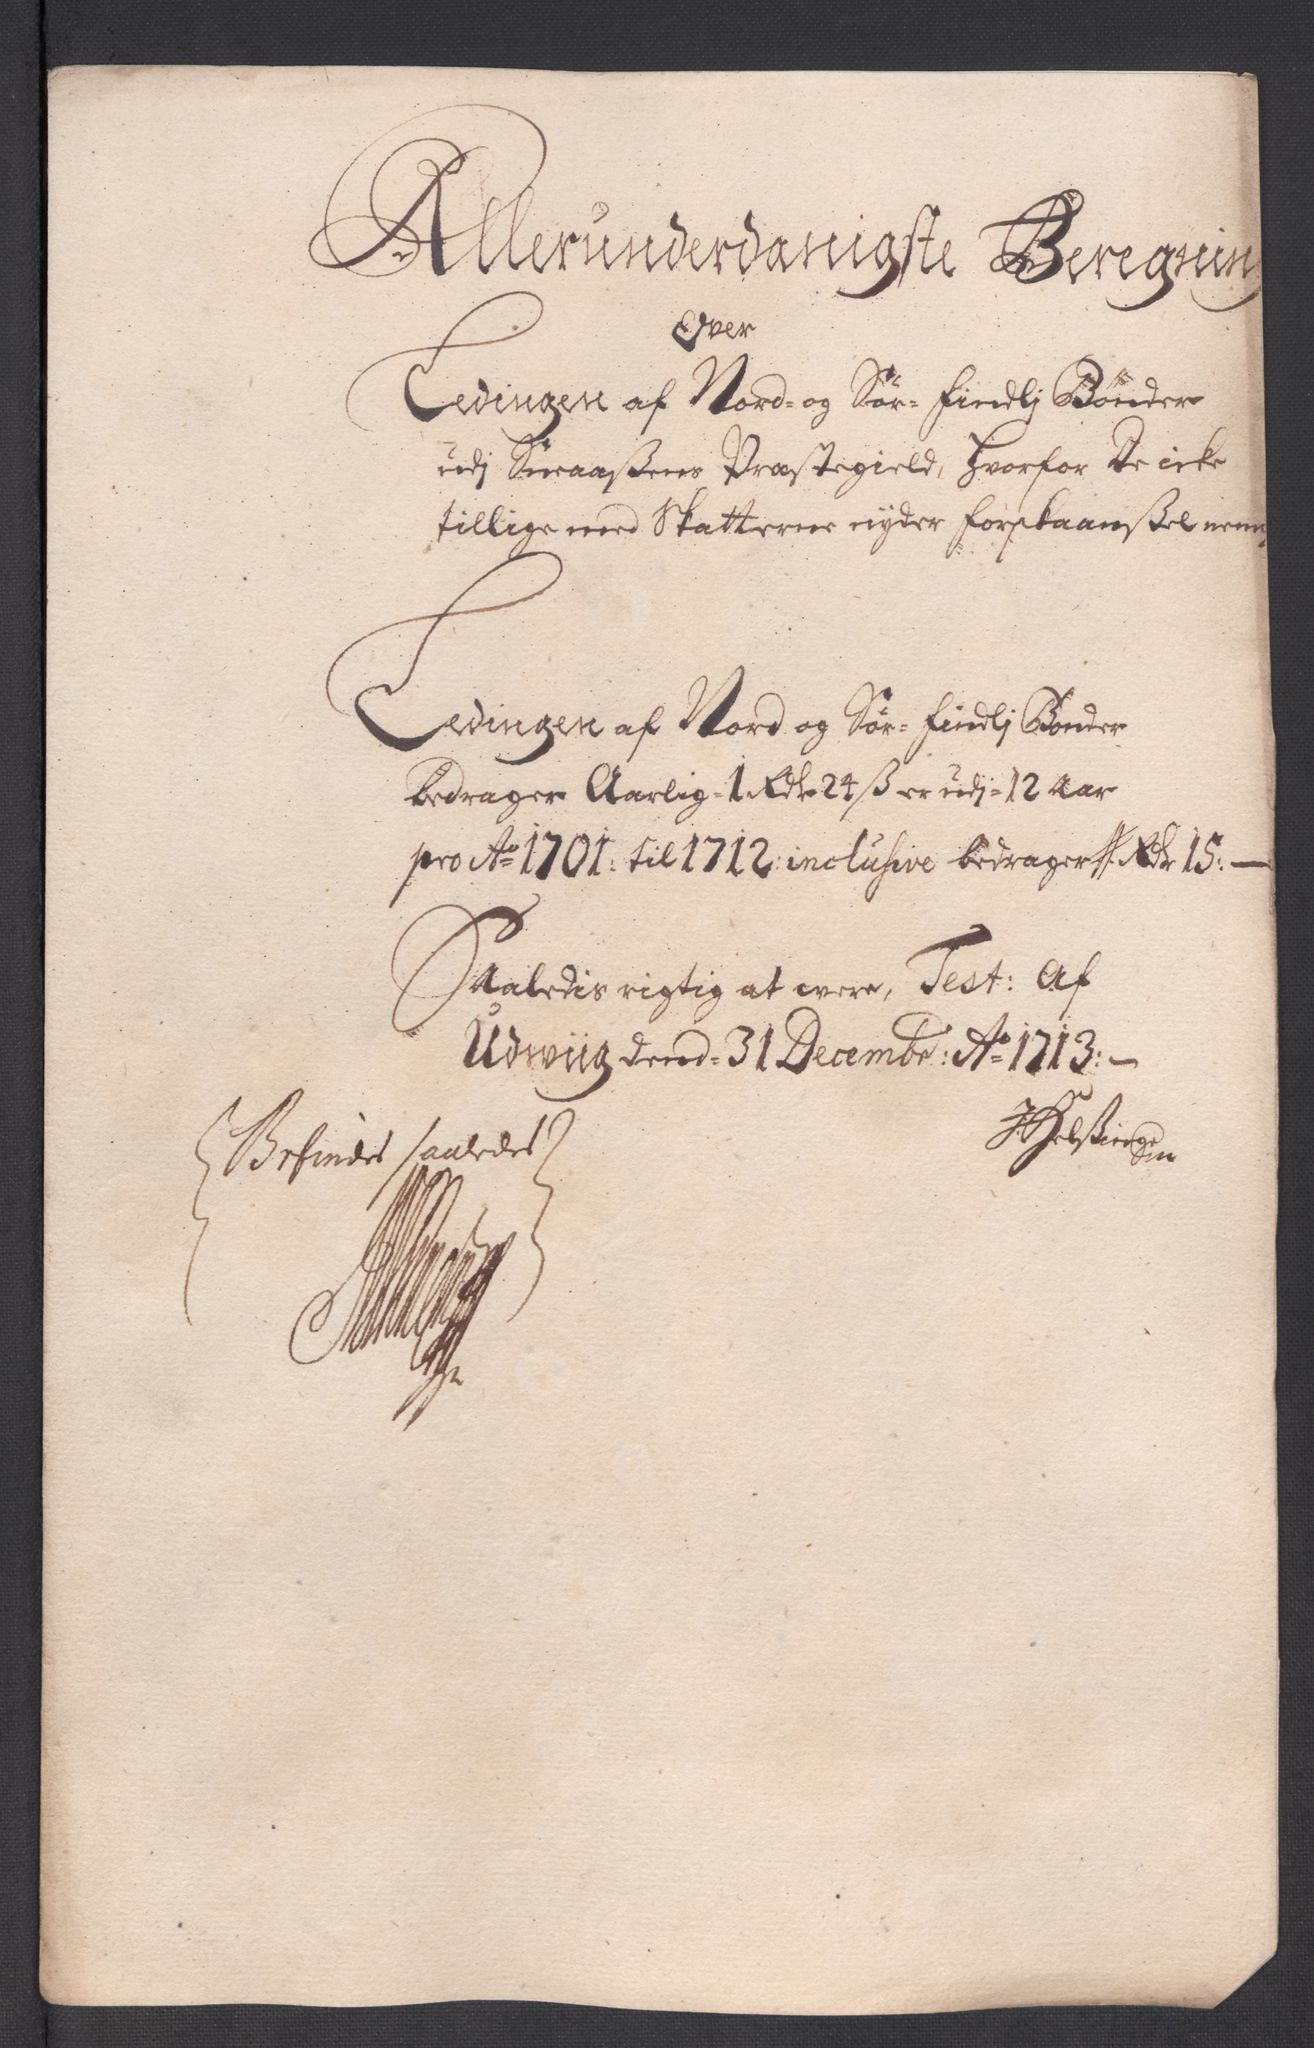 Allerunderdanigste Beregning
Over
Ledingen af Nord- og Sør- findlj Bønder
udj Snaaßens Præstegield, hvorfor De icke
tillige med Skatterne nyder forskaanßel nemb:
Ledingen af Nord og Sør- findlj Bønder
bedrager Aarlig- 1 Rdr 24 ß er udj- 12 Aar
pro Ao 1701: til 1712: inclusive bedrager Rdr 15: —
Saaledis rigtig at were, Test: Af
Udwiig dend- 31 Decembr: Ao 1713: —
Befindes saaledes